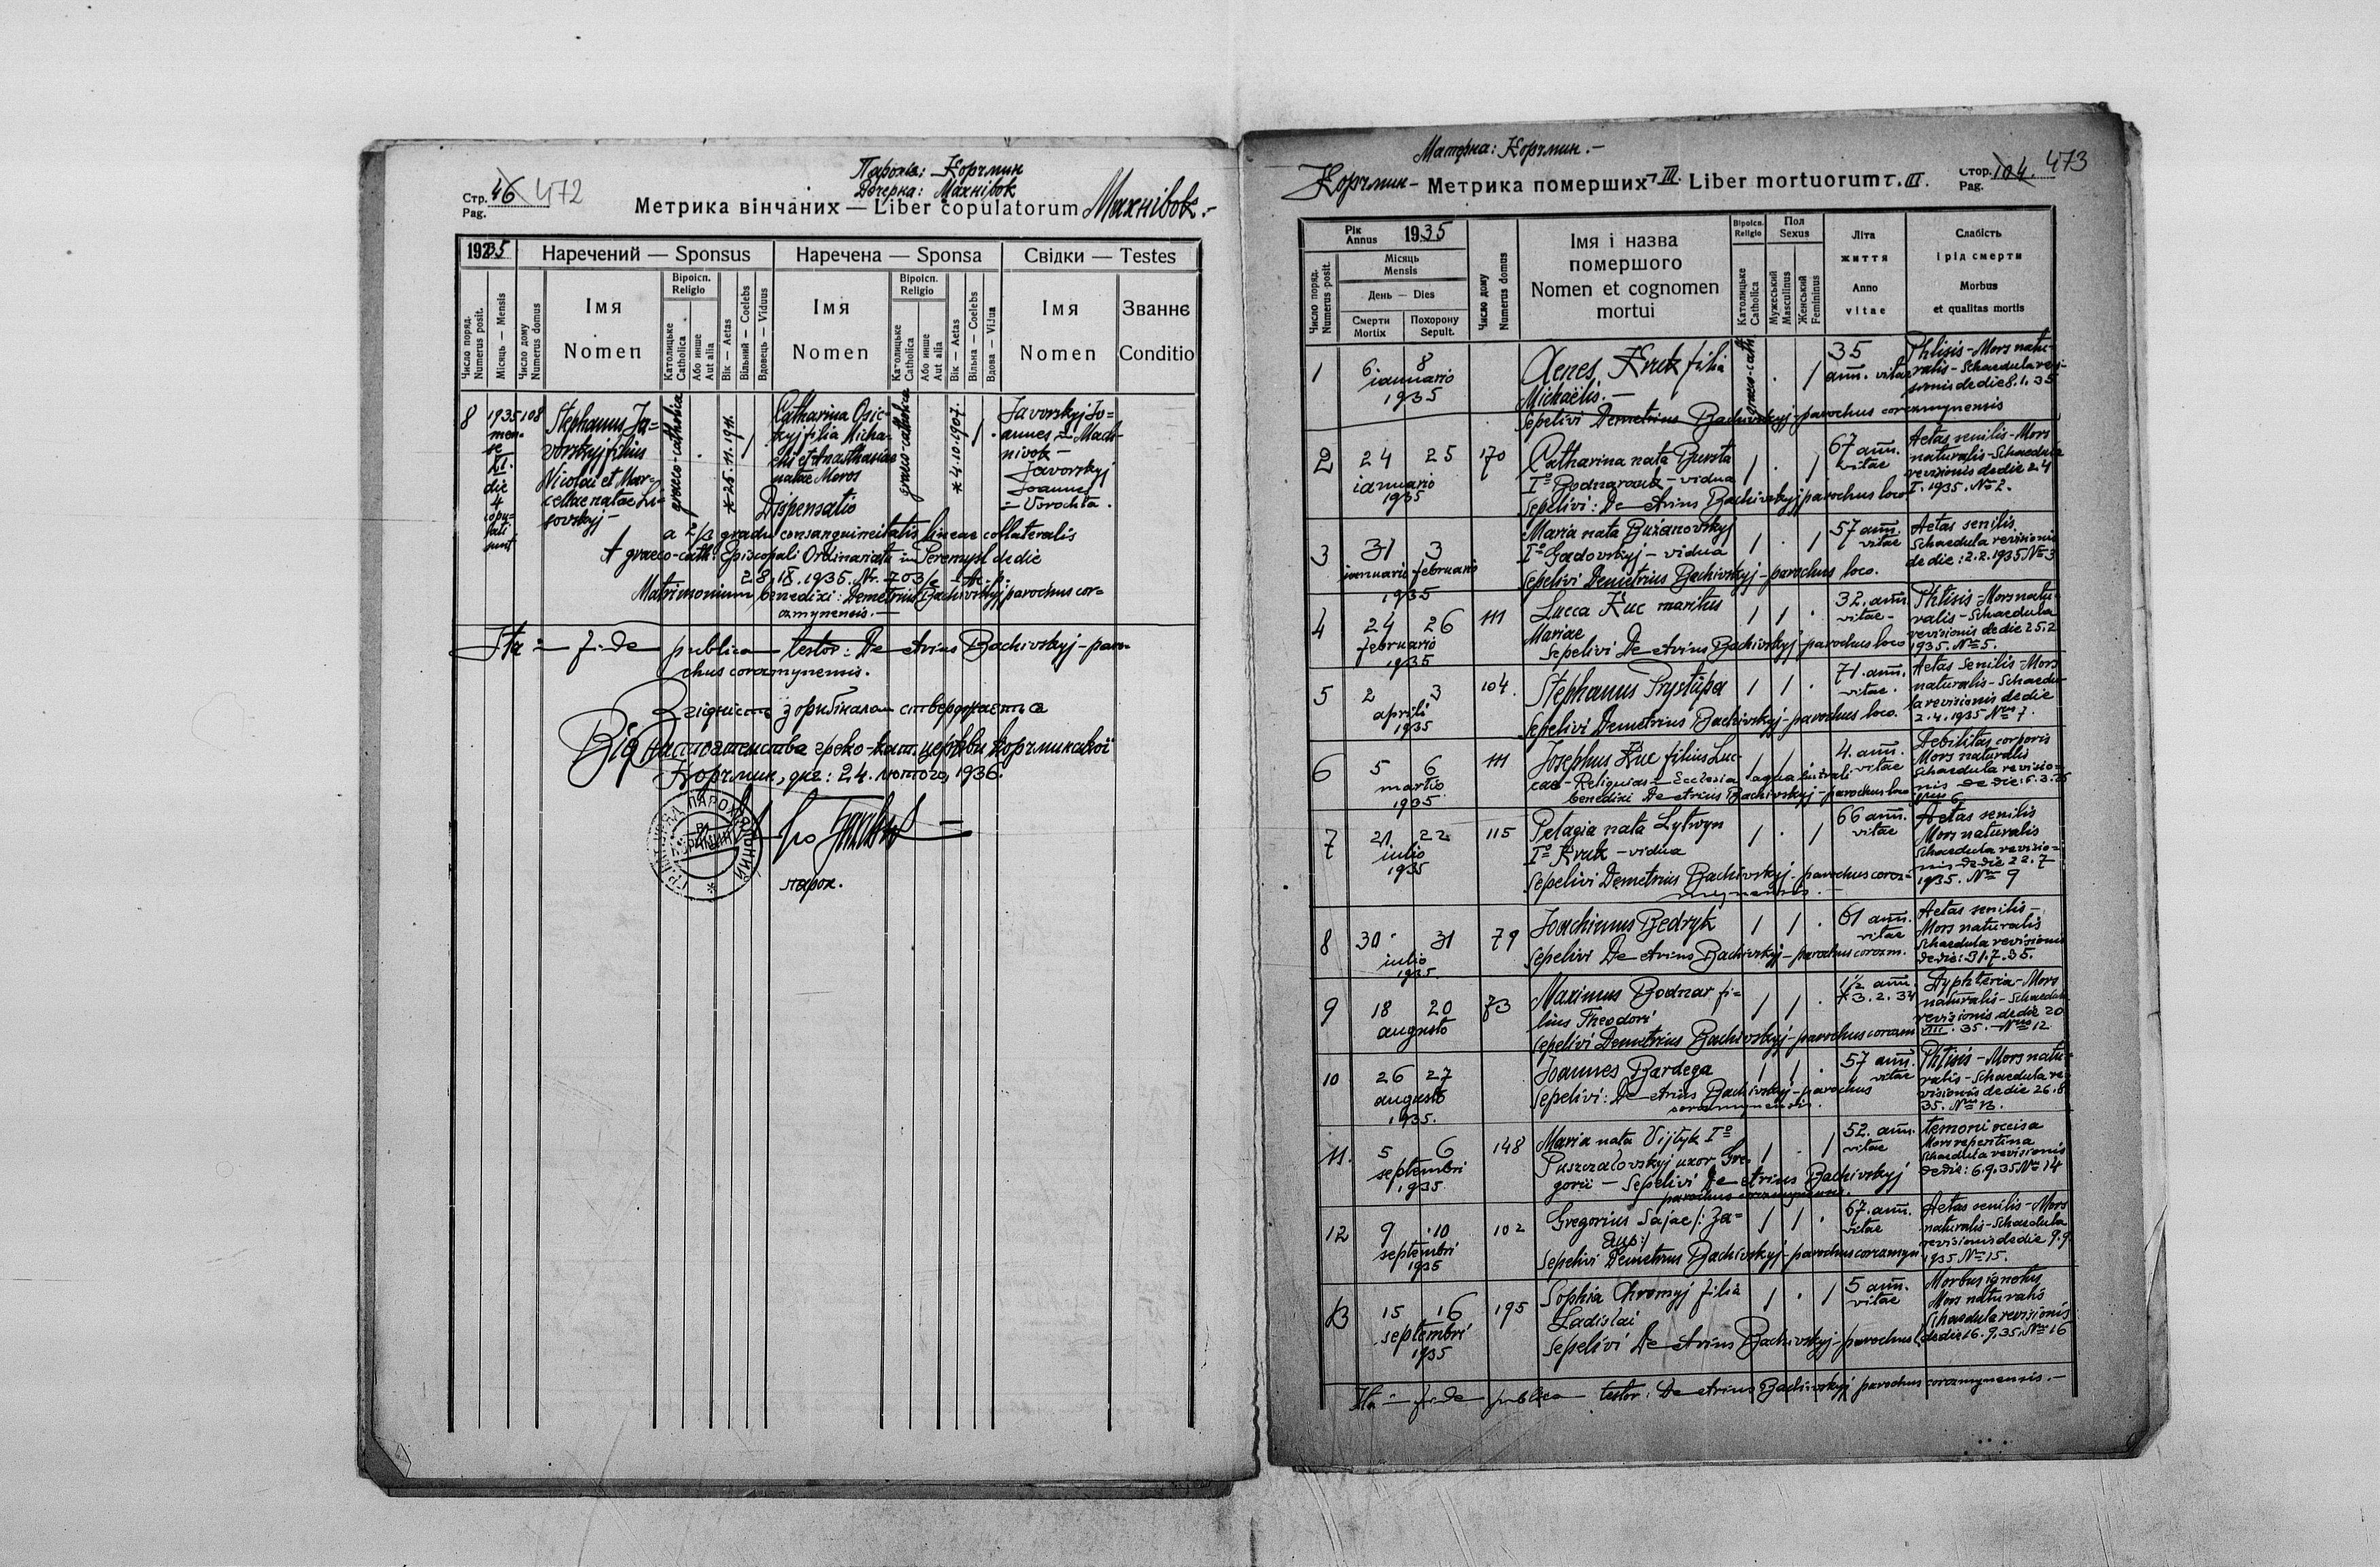 Парохія: Корчмин
Дочерна: Махнівок
Стр. 46 472
Pag.
Метрика вінчаних — Liber copulatorum Махнівок.-
1935
Наречений — Sponsus
Наречена — Sponsa
Свідки — Testes
Число поряд.
Numerus posit.
Місяць — Mensis
Число дому
Numerus domus
Імя
Nomen
Віроісп.
Religio
Католицьке
Catholica
Або инше
Aut alia
Вік — Aetas
Вільний — Coelebs
Вдовець — Viduus
Імя
Nomen
Віроісп.
Religio
Католицьке
Catholica
Або инше
Aut alia
Вік — Aetas
Вільна — Coelebs
Вдова — Vidua
Імя
Nomen
Званнє
Conditio
8
1935
men-
se
XI.
die
4
copu-
lati
sunt
108
Stephanus Ja=
vorskyj filius
Nicolai et Mar-
cellae natae Li-
sovskyj -
graeco-catholica
* 25. 11. 1911.
Catharina Osic-
kyj filia Micha-
elis et Anasthasiae
natae Moros
graeco-catholica
* 4. 10. 1907.
Javorskyj Jo=
annes = Mach-
nivok -
Javorskyj
Joannes
=Ворохта.
Dispensatio
a 2/3 gradu consanguineitatis lineae collateralis
A graeco-cath. Episcopali Ordinariatu in Peremysl de die
28. IX. 1935. Nr. 703/
Matrimonium benedixi: Demetrius Bachivskyj parochus cor=
czmynensis. -
Ita = fide publica testor: Demetrius Bachivskyj - paro-
chus corczmynensis.
Згідність з оригіналом стверджається
Від Настоятельства греко-кат. церкви Корчминської
Корчмин, дня: 24. лютого, 1936.
парох.
Матірна: Корчмин. -
Корчмин - Метрика помершихт. III. Liber mortuorum т. III.
Стор. 104. 473
Pag.
Рік
Annus
1935
Місяць
Mensis
День — Dies
Смерти
Mortix
Похорону
Sepult.
Число поряд.
Numerus posit.
Число дому
Numerus domus
Імя і назва
помершого
Nomen et cognomen
mortui
Віроісп.
Religio
Католицьке
Catholica
Пол
Sexus
Мужеський
Masculinus
Женський
Femininus
Літа
життя
Anno
vitae
Слабість
і рід смерти
Morbus
et qualitas mortis
1
6 8
ianuario
1935
Agnes Kruk filia
Michaëlis. -
graeco-cath.
35
ann. vitae
Phtisis - Mors natu-
ralis - Schaedula revi-
sionis de die 8. 1. 35
Sepelivi Demetrius Bachivskyj - parochus corczmynensis
2
24 25
ianuario
1935
170
Catharina nata Burta
I° Bodnarczuk - vidua
Sepelivi: Demetrius Bachivskyj parochus loco
67 ann.
vitae
Aetas senilis - Mors
naturalis - Schaedula
revisionis de die 24
I. 1935. № 2.
3
31 3
ianuario februario
1935
Maria nata Buzanovskyj
I° Gadovskyj - vidua
Sepelivi Demetrius Bachivskyj - parochus loco.
57 ann.
vitae
Aetas senilis
Schaedula revisionis
de die: 2. 2. 1935 № 3
4
24 26
februario
1935
111
Lucca Kuc maritus
Mariae
Sepelivi Demetrius Bachivskyj - parochus loco
32. ann.
vitae -
Phtisis - Mors natu-
ralis - Schaedula
revisionis de die 25. 2
1935. № 5.
5
2 3
aprili
1935
104.
Stephanus Prystupa
Sepelivi Demetrius Bachivskyj - parochus loco.
71. ann.
vitae.
Aetas senilis - Mors
naturalis - Schaedu-
la revisionis de die
2. 4. 1935 № 7.
6
5 6
martio
1935
111
Josephus Kuc filius Luc-
cae - Reliquias in Ecclesia aqua lustrali
benedixi Demetrius Bachivskyj - parochus loco
4. ann.
vitae
Debilitas corporis
Mors naturalis
Schaedula revisio-
nis de die: 6. 3. 35
7
21 22
iulio
1935
115
Pelagia nata Lytwyn
I° Kruk - vidua
Sepelivi Demetrius Bachivskyj - parochus corcz-
mynensis. -
66 ann.
vitae
Aetas senilis
Mors naturalis
Schaedula revisio-
nis de die 22. 7
1935. № 9
8
30 31
iulio
1935.
79
Joachimus Bedryk
Sepelivi Demetrius Bachivskyj - parochus corczm.
61 ann.
vitae
Aetas senilis -
Mors naturalis
Schaedula revisionis
de die: 31. 7. 35.
9
18 20
augusto
73
Maximus Bodnar fi-
lius Theodori
Sepelivi Demetrius Bachivskyj - parochus corczm
1½ ann.
* 3. 2. 34
Dyphteria - Mors
naturalis - Schaedula
revisionis de die 20
VIII. 35. - № 12
10
26 27
augusto
1935.
Joannes Bardega
Sepelivi: Demetrius Bachivskyj - parochus
corczmynensis.
57 ann.
vitae
Phtisis - Mors natu-
ralis - Schaedula re-
visionis de die 26. 8
35. № 13.
11.
5 6
septembri
1935
148
Maria nata Vijtyk I°
Puszczalovskyj uxor Gre-
gorii - Sepelivi Demetrius Bachivskyj
parochus corczmynensis.
52. ann.
vitae
temoni occisa
Mors repentina
Schaedula revisionis
de die: 6. 9. 35 № 14
12
9 10
septembri
1935
102
Gregorius Sajac /: За=
яць :/
Sepelivi Demetrius Bachivskyj - parochus corczmyn.
67. ann.
vitae
Aetas senilis - Mors
naturalis - Schaedula
revisionis de die 9. 9
1935 № 15.
13
15 16
septembri
1935
195
Sophia Chromyj filia
Ladislai
Sepelivi Demetrius Bachivskyj - parochus
5 ann.
vitae
Morbus ignotus
Mors naturalis
Schaedula revisionis
de die 16. 9. 35. № 16
Ita = fide publica testor: Demetrius Bachivskyj parochus corczmynensis. -